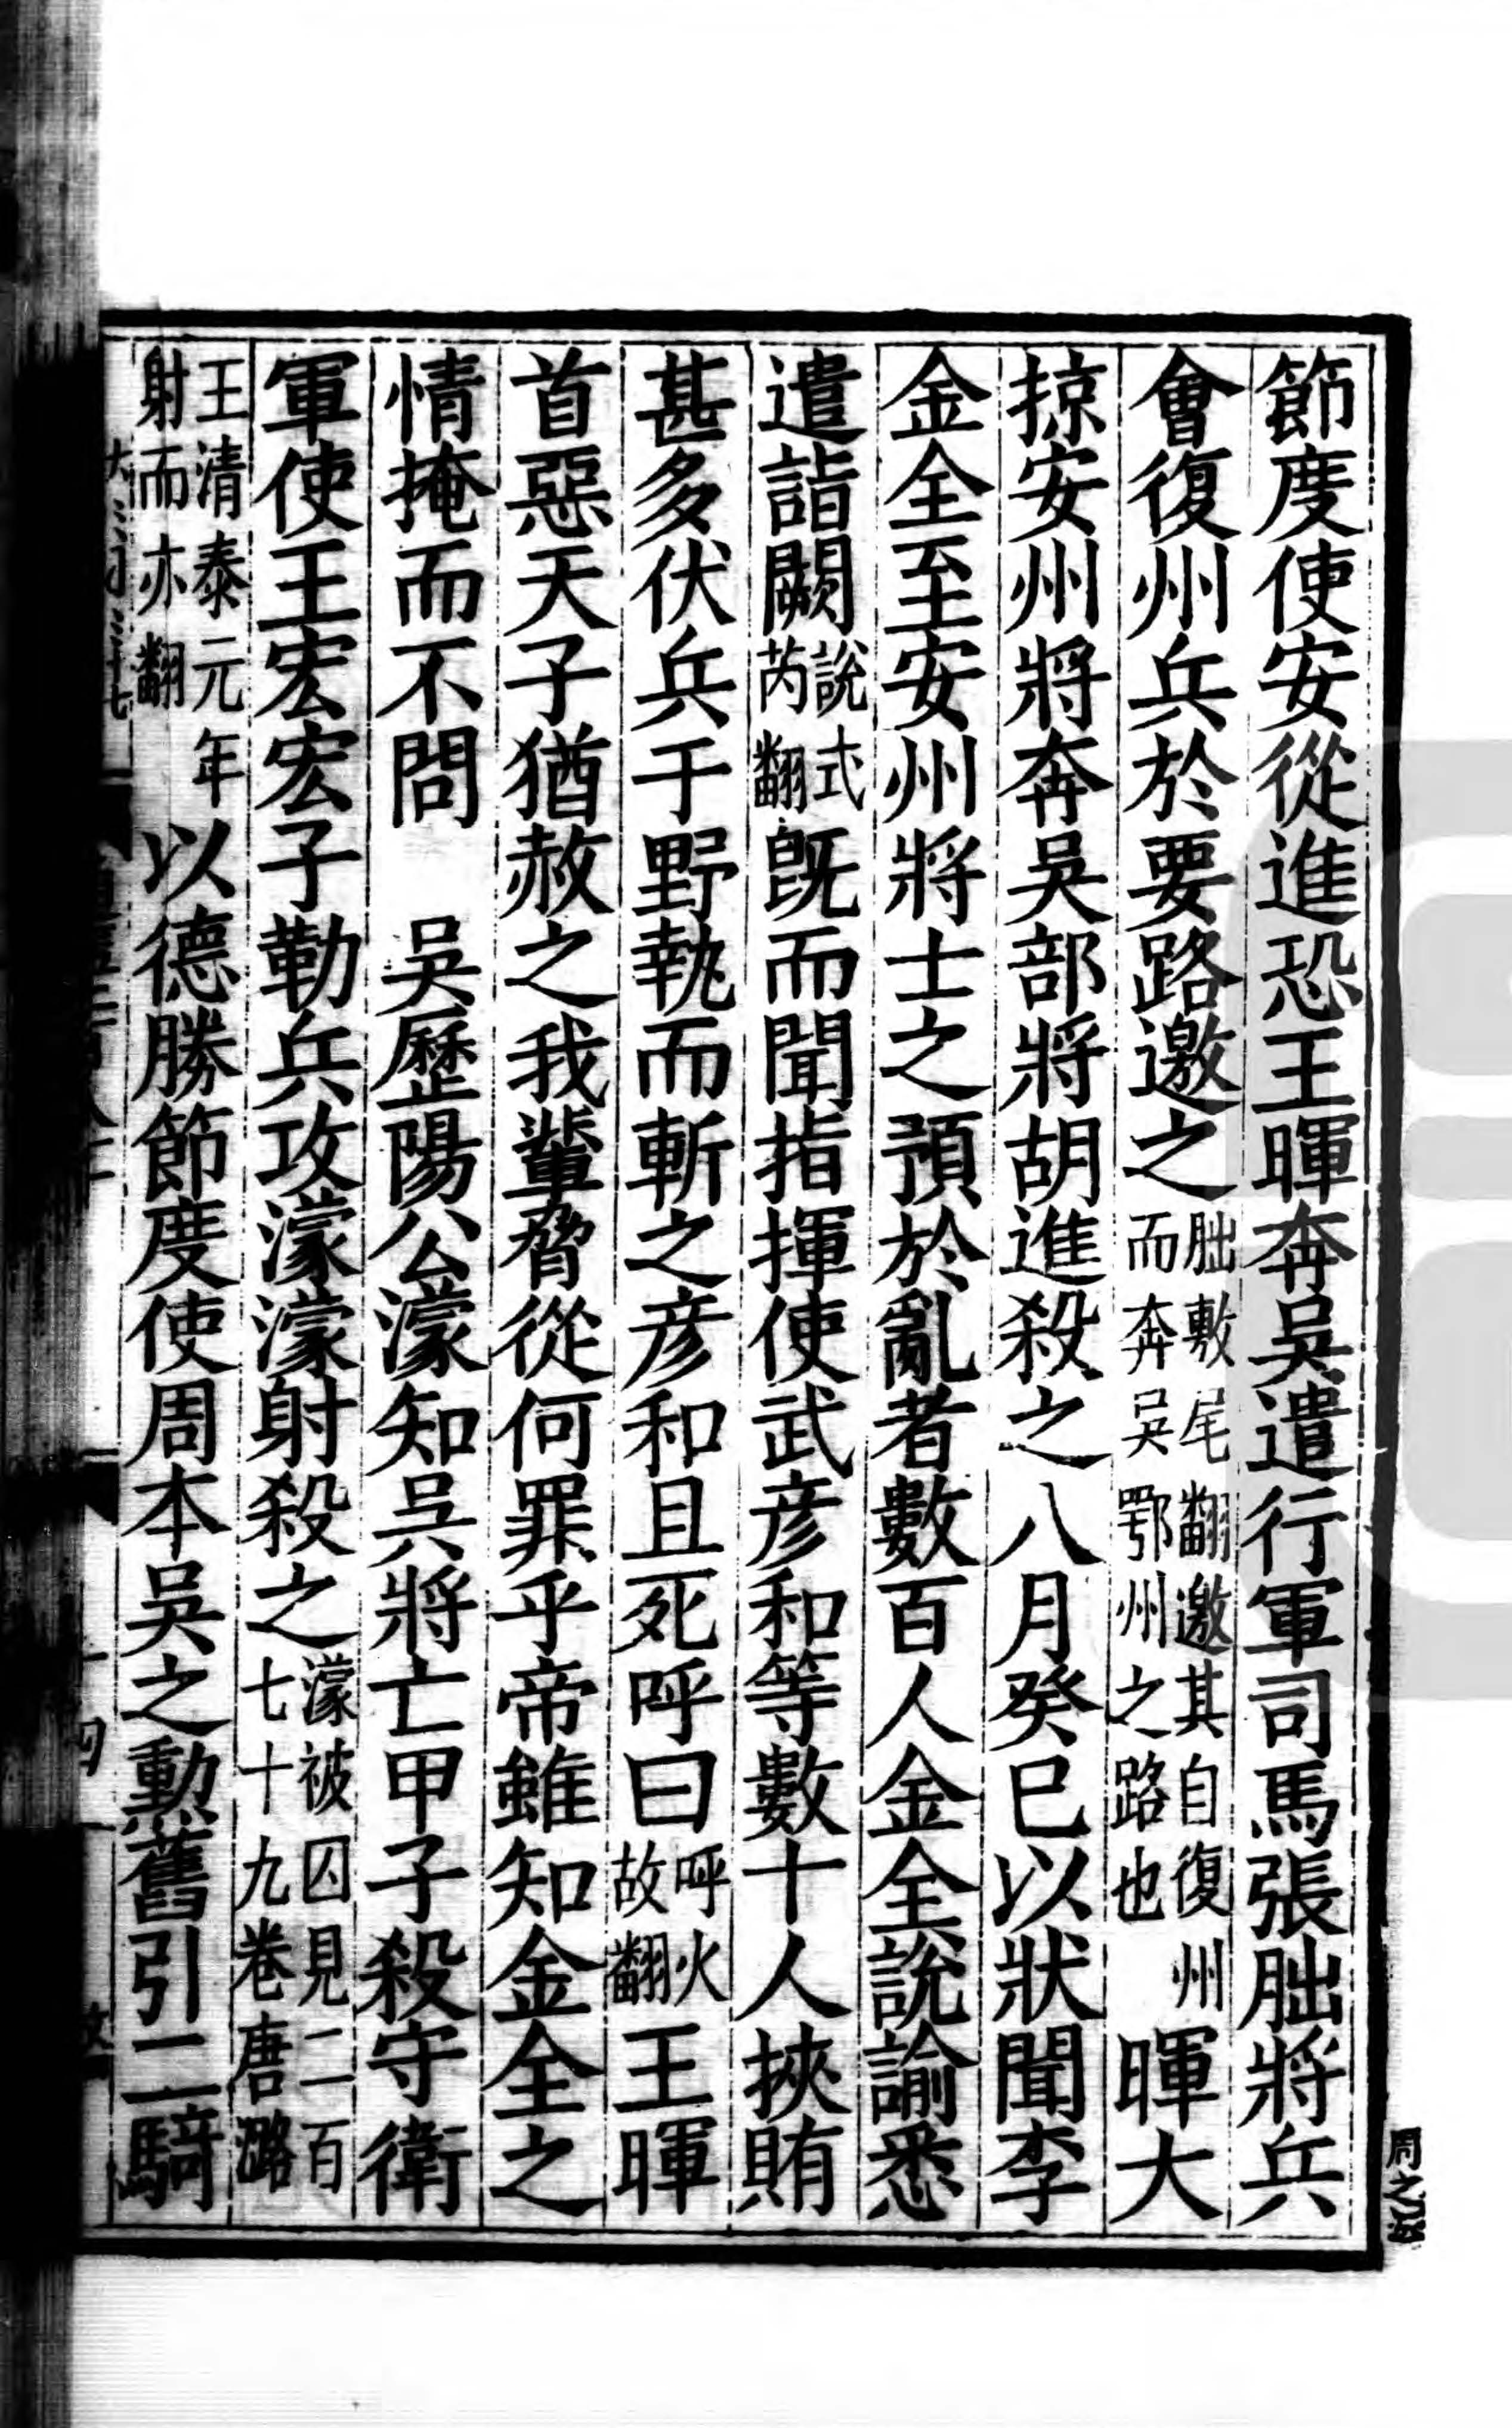 節度使安從進恐王暉奔吳遣行軍司馬張朏將兵
會復州兵於要路邀之朏敷尾翻邀其自復州而奔吳鄂州之路也暉大
掠安州將奔吳部將胡進殺之八月癸巳以狀聞李
金全至安州將士之預於亂者數百人金全說諭悉
遣詣闕說式芮翻旣而聞指揮使武彥和等數十人挾賄
甚多伏兵于野執而斬之彥和且死呼曰呼火故翻王暉
首惡天子猶赦之我輩脅從何罪乎帝雖知金全之
情掩而不問　吳歷陽公濛知吳將亡甲子殺守衛
軍使王宏宏子勒兵攻濛濛射殺之濛被囚見二百七十九卷唐潞
王清泰元年射而亦翻以德勝節度使周本吳之勳舊引二騎